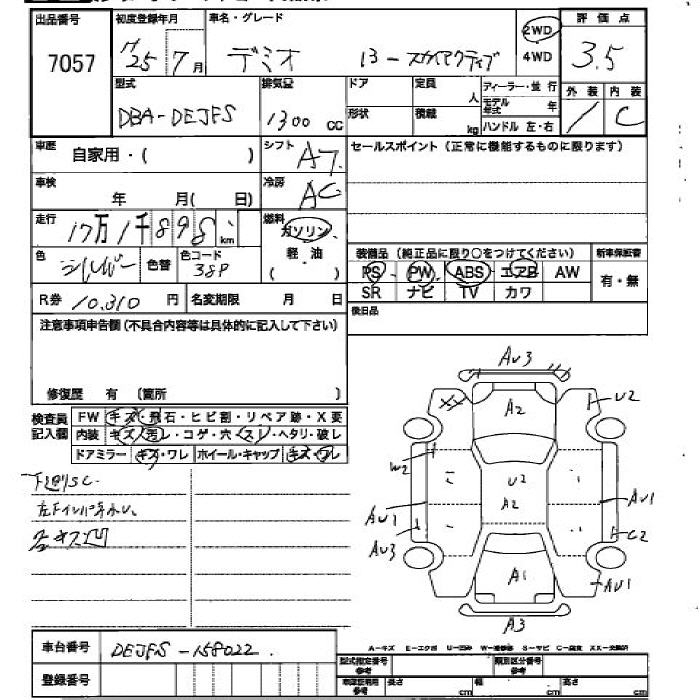 出品番号 初度登録年月 車名・グレード 評価点
7057 H25年7月 デミオ 13-スカイアクティブ 2WD 4WD 3.5
型式 排気量 ドア 定員 人 ディーラー・並行 外装 内装
DBA-DEJFS 1300 cc 形状 積載 kg モデル年式 年 / C
ハンドル 左・右
車歴 自家用・( ) シフト AT セールスポイント(正常に機能するものに限ります)
車検 年 月( 日) 冷房 AC
走行 17万1千898 km 燃料 ガソリン
色 シルバー 色替 色コード 38P 軽・油 ( ) 装備品(純正品に限り○をつけてください) 新車保証書
PS PW ABS エアB AW 有・無
R券 10,310円 名変期限 月 日 SR ナビ TV カワ
注意事項申告欄(不具合内容等は具体的に記入して下さい) 後日品
修復歴 有 〔箇所 〕
検査員記入欄 FW キズ・飛石・ヒビ割・リペア跡・X要
内装 キズ・汚レ・コゲ・穴・スレ・ヘタリ・破レ
ドアミラー キズ・ワレ ホイール・キャップ キズ・ワレ
下廻りSC
AU3
XX A2 U2
W2 U2 A2
AU1 AU1
AU3 C2
A1 AU1
A3
A-キズ E-エクボ U-凹み W-補修跡 S-サビ C-腐食 XX-交換済
車台番号 DEJFS-158022
登録番号
型式指定番号 参考 類別区分番号 参考
長さ cm 幅 cm 高さ cm